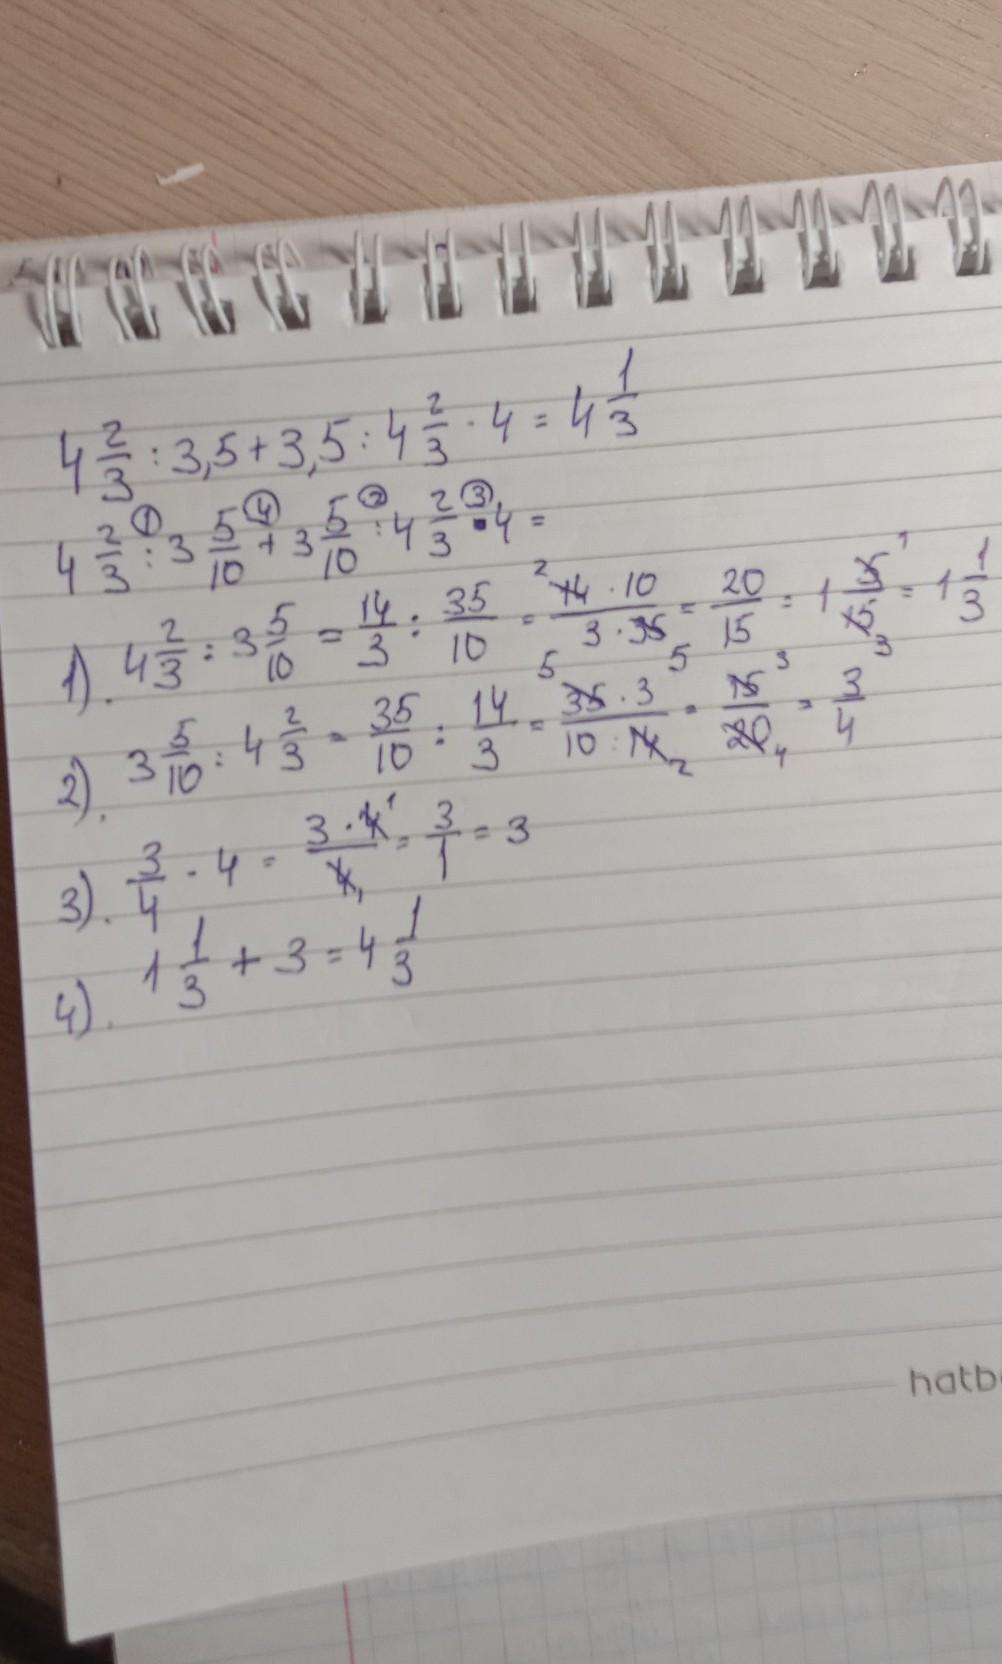 4 2/3 : 3,5 + 3,5 : 4 2/3 · 4 = 4 1/3
4 2/3 :① 3 5/10 +④ 3 5/10 :② 4 2/3 ·③ 4 =
1). 4 2/3 : 3 5/10 = 14/3 : 35/10 = 2 14 · 10 / 3 · 35 5 = 20/15 = 1 5 1/15 3 = 1 1/3
2). 3 5/10 : 4 2/3 = 35/10 : 14/3 = 5 35 · 3 / 10 : 14 2 = 15 3/20 4 = 3/4
3). 3/4 · 4 = 3 · 4 1 / 4 1 = 3/1 = 3
4). 1 1/3 + 3 = 4 1/3